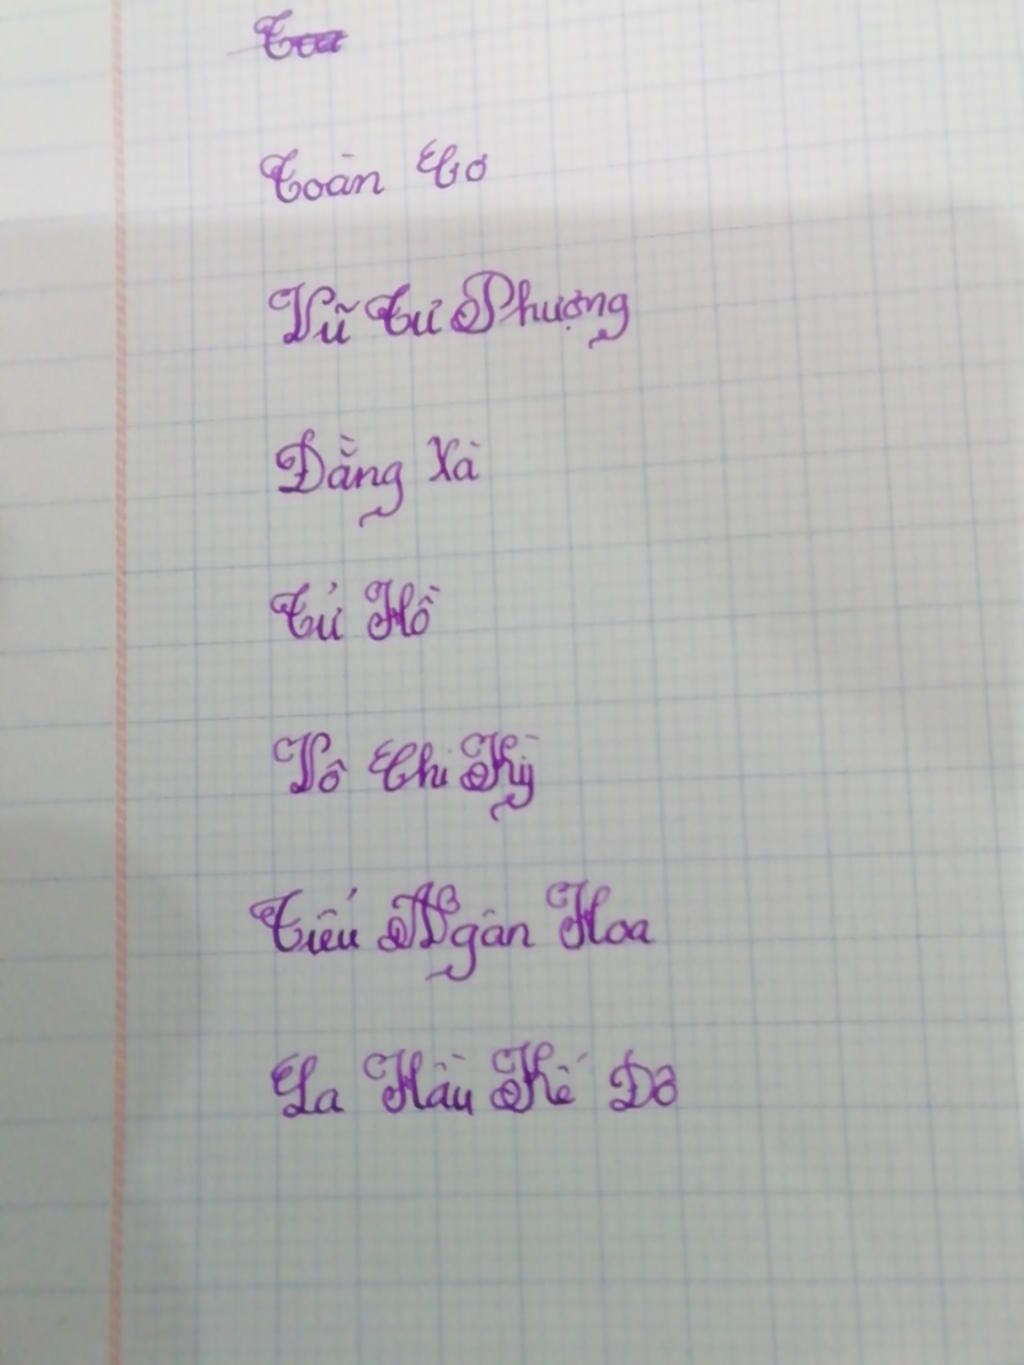 Toàn Cơ
Vũ Tư Phượng
Đằng Xà
Tử Hồ
Vô Chi Kỳ
Tiểu Ngân Hoa
La Hầu Kế Đô